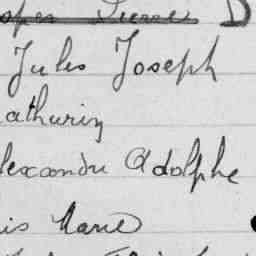 Pierre D
Jules Joseph
athurin
lexandre Adolphe
is Marie